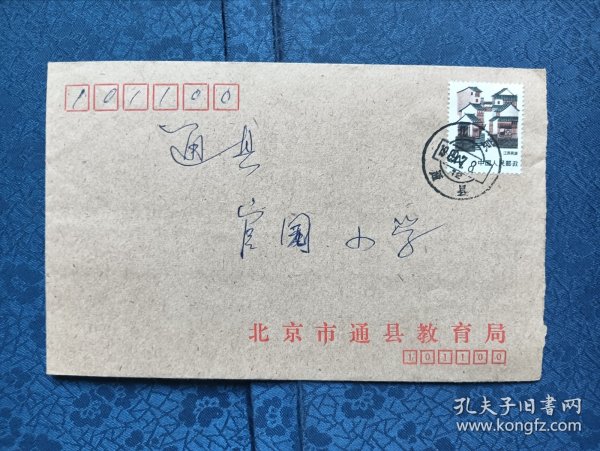 101100
通县
官园小学
江苏民居
中国人民邮政
北京市通县教育局
101100
孔夫子旧书网
www.kongfz.com